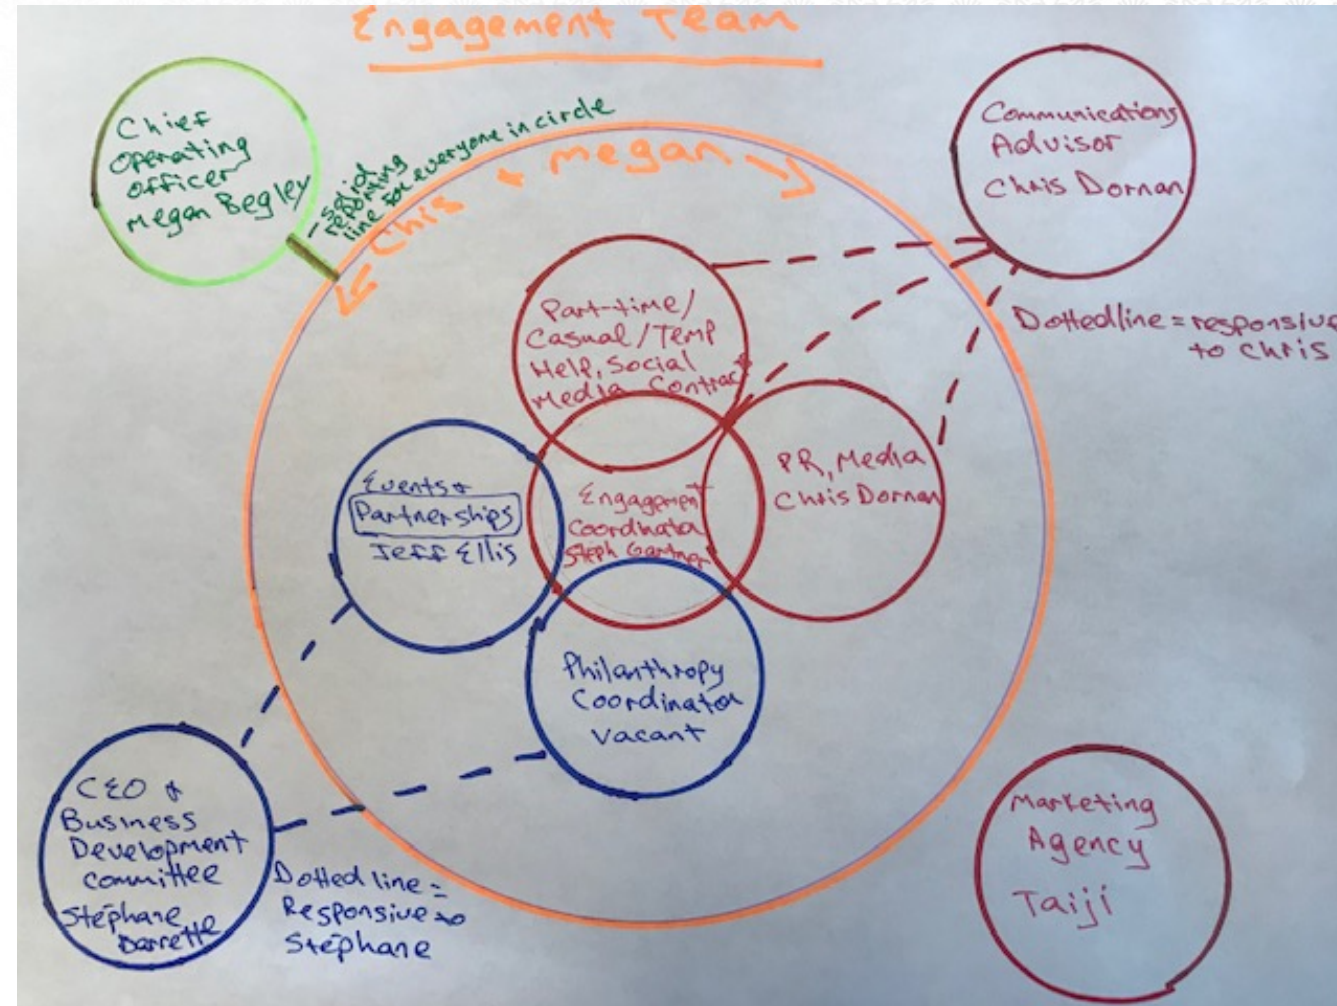 Engagement Team
Chief
Operating
Officer
Megan Begley
- Solid
reporting
line for everyone in circle
Chis + megan
Communications
Advisor
Chris Dornan
Dotted line = responsive
to Chris
Part-time/
Casual/Temp
Help, Social
Media Contract
PR, Media
Chris Dornan
Events &
Partnerships
Jeff Ellis
Engagement
Coordinator
Steph Gartner
Philanthropy
Coordinator
Vacant
CEO &
Business
Development
Committee
Stéphane
Barrette
Dotted line =
Responsive to
Stéphane
Marketing
Agency
Taiji